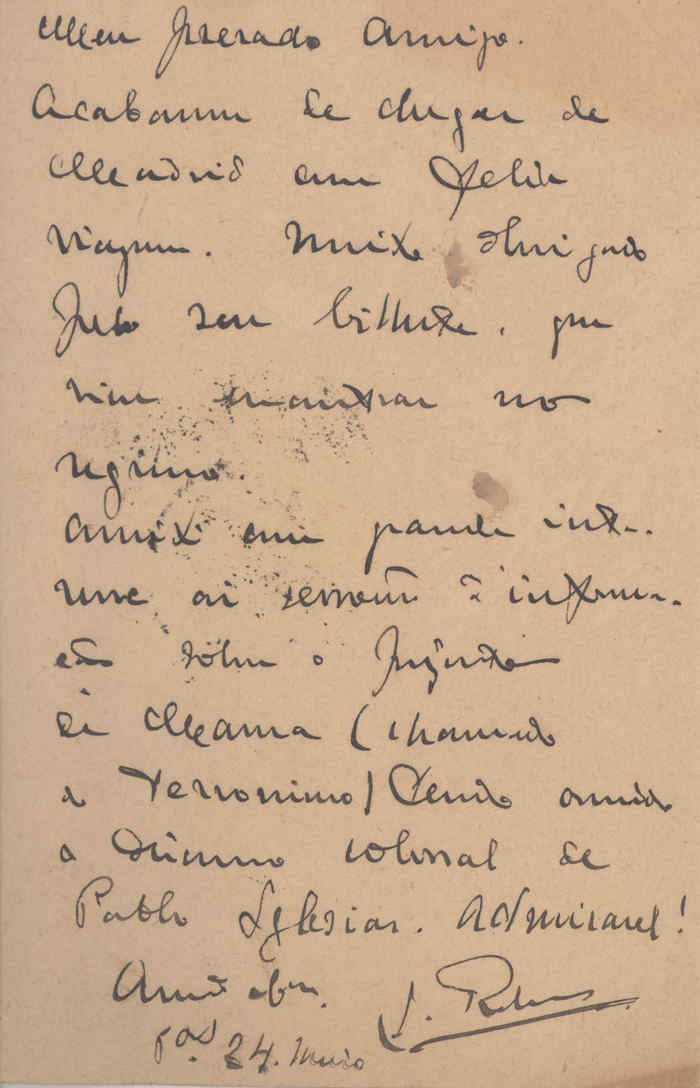 Meu presado Amigo.
Acabamos de chegar de
Madrid em feliz
viagem. Muito obrigado
pelo seu bilhete, que
vim encontrar no
regresso.
com grande inte-
resse as sessões à informa-
ção sobre o projecto
de Maura (chamado
o Terrorismo) tendo ouvido
o discurso colossal de
Pablo Iglesias. Admiravel!
24. Maio